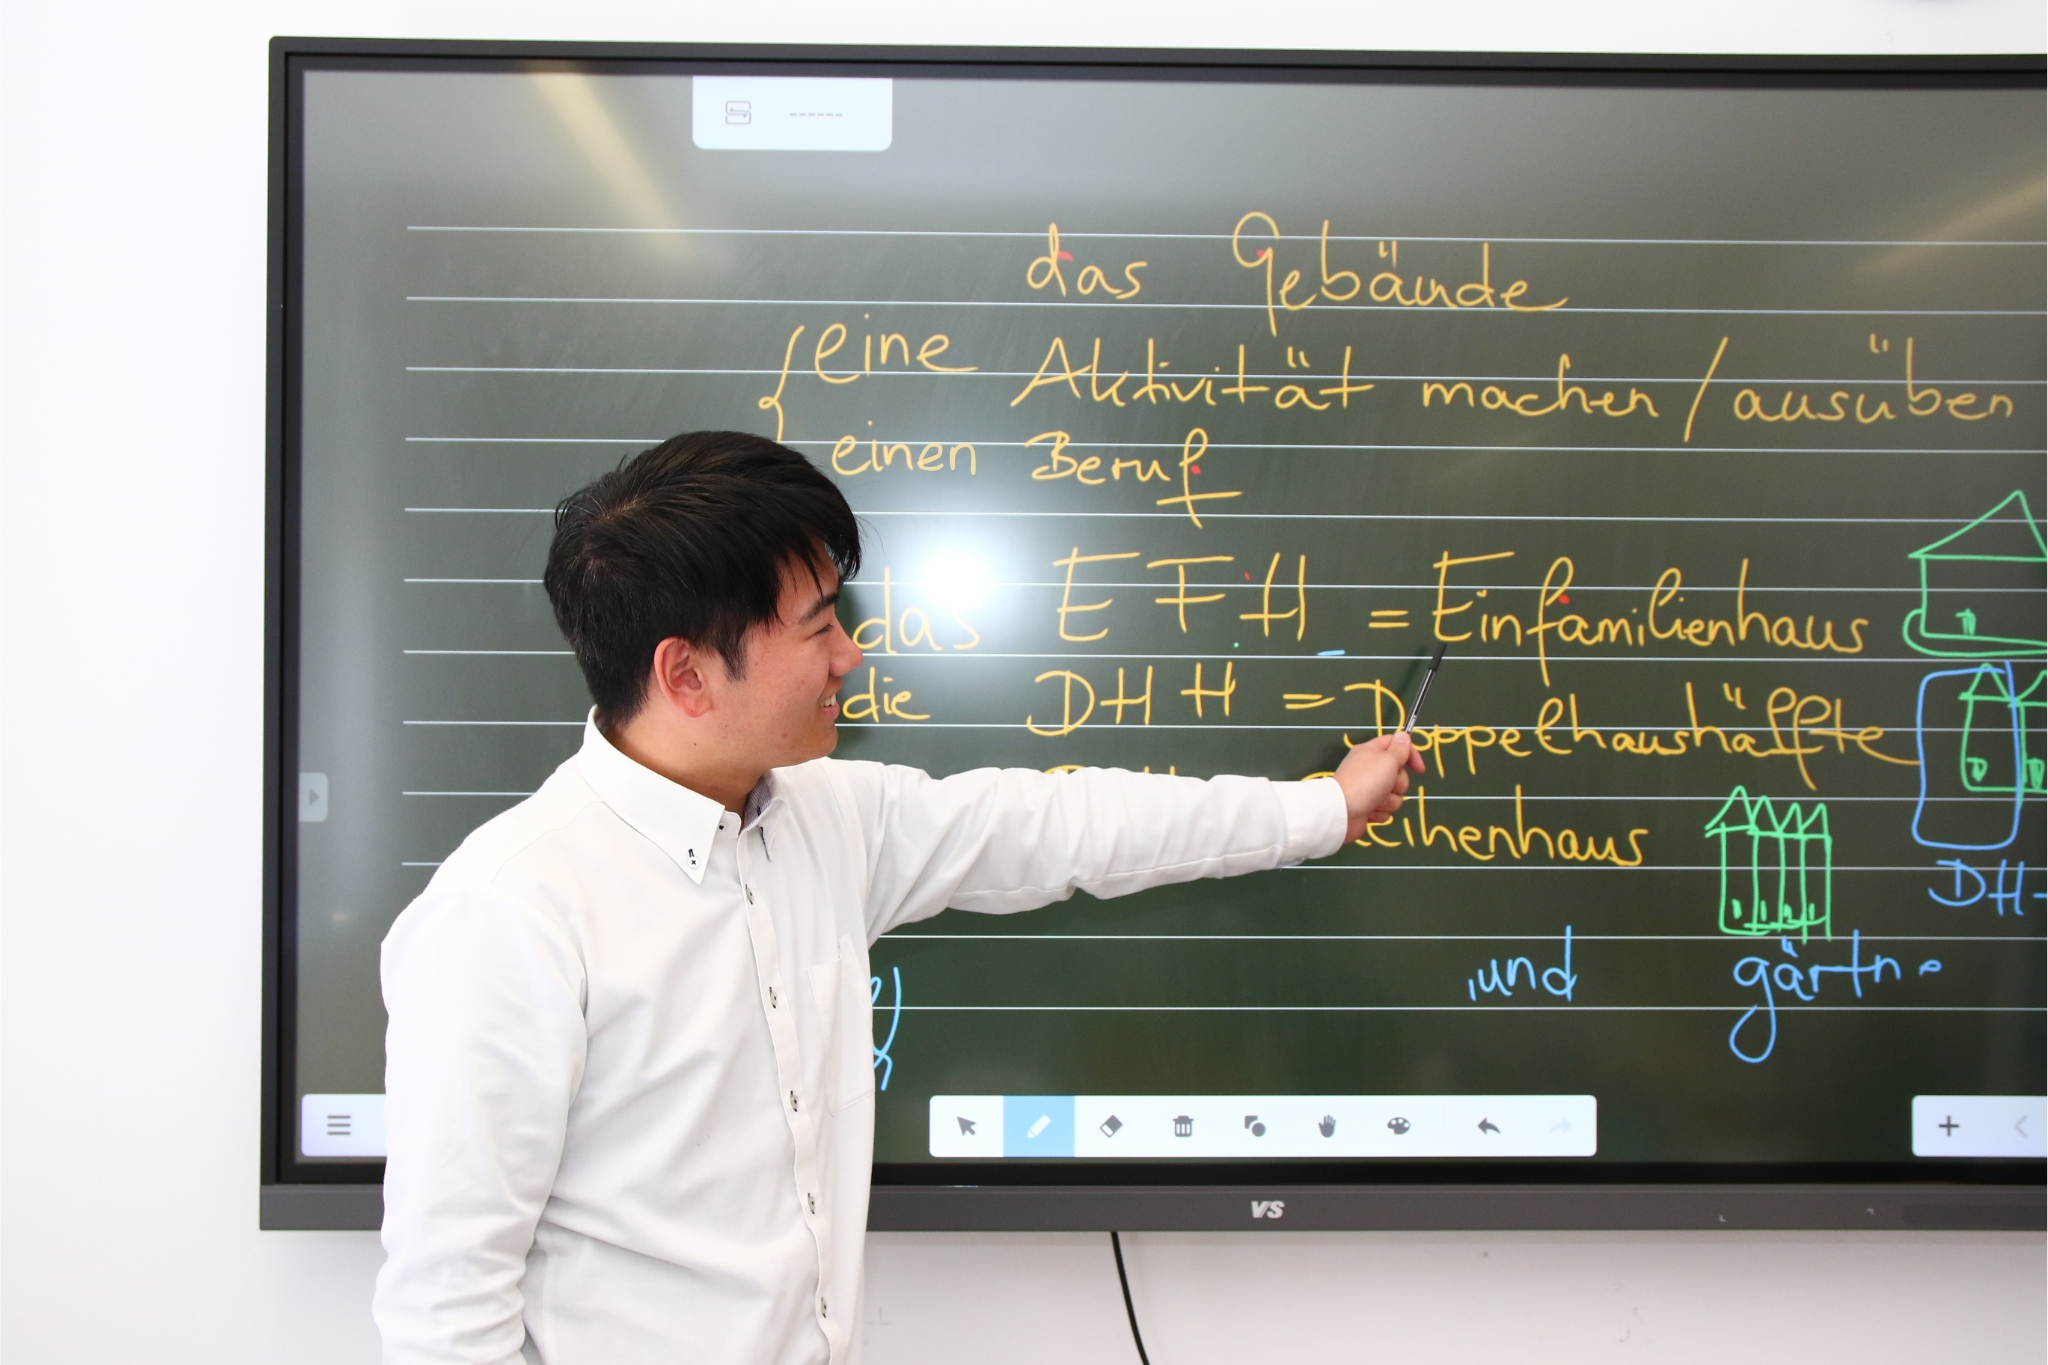 das Gebäude
eine Aktivität machen / ausüben
einen Beruf
das EFH = Einfamilienhaus
die DHH = Doppelhaushälfte
eihenhaus
DH-
und gärtn
VS